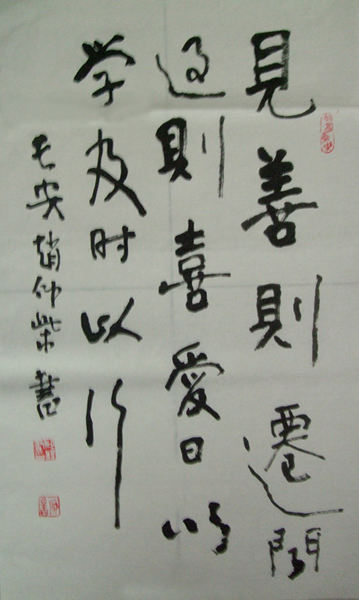 見善則遷聞
过則喜愛日以
学及时以行
长安趙仲柴書